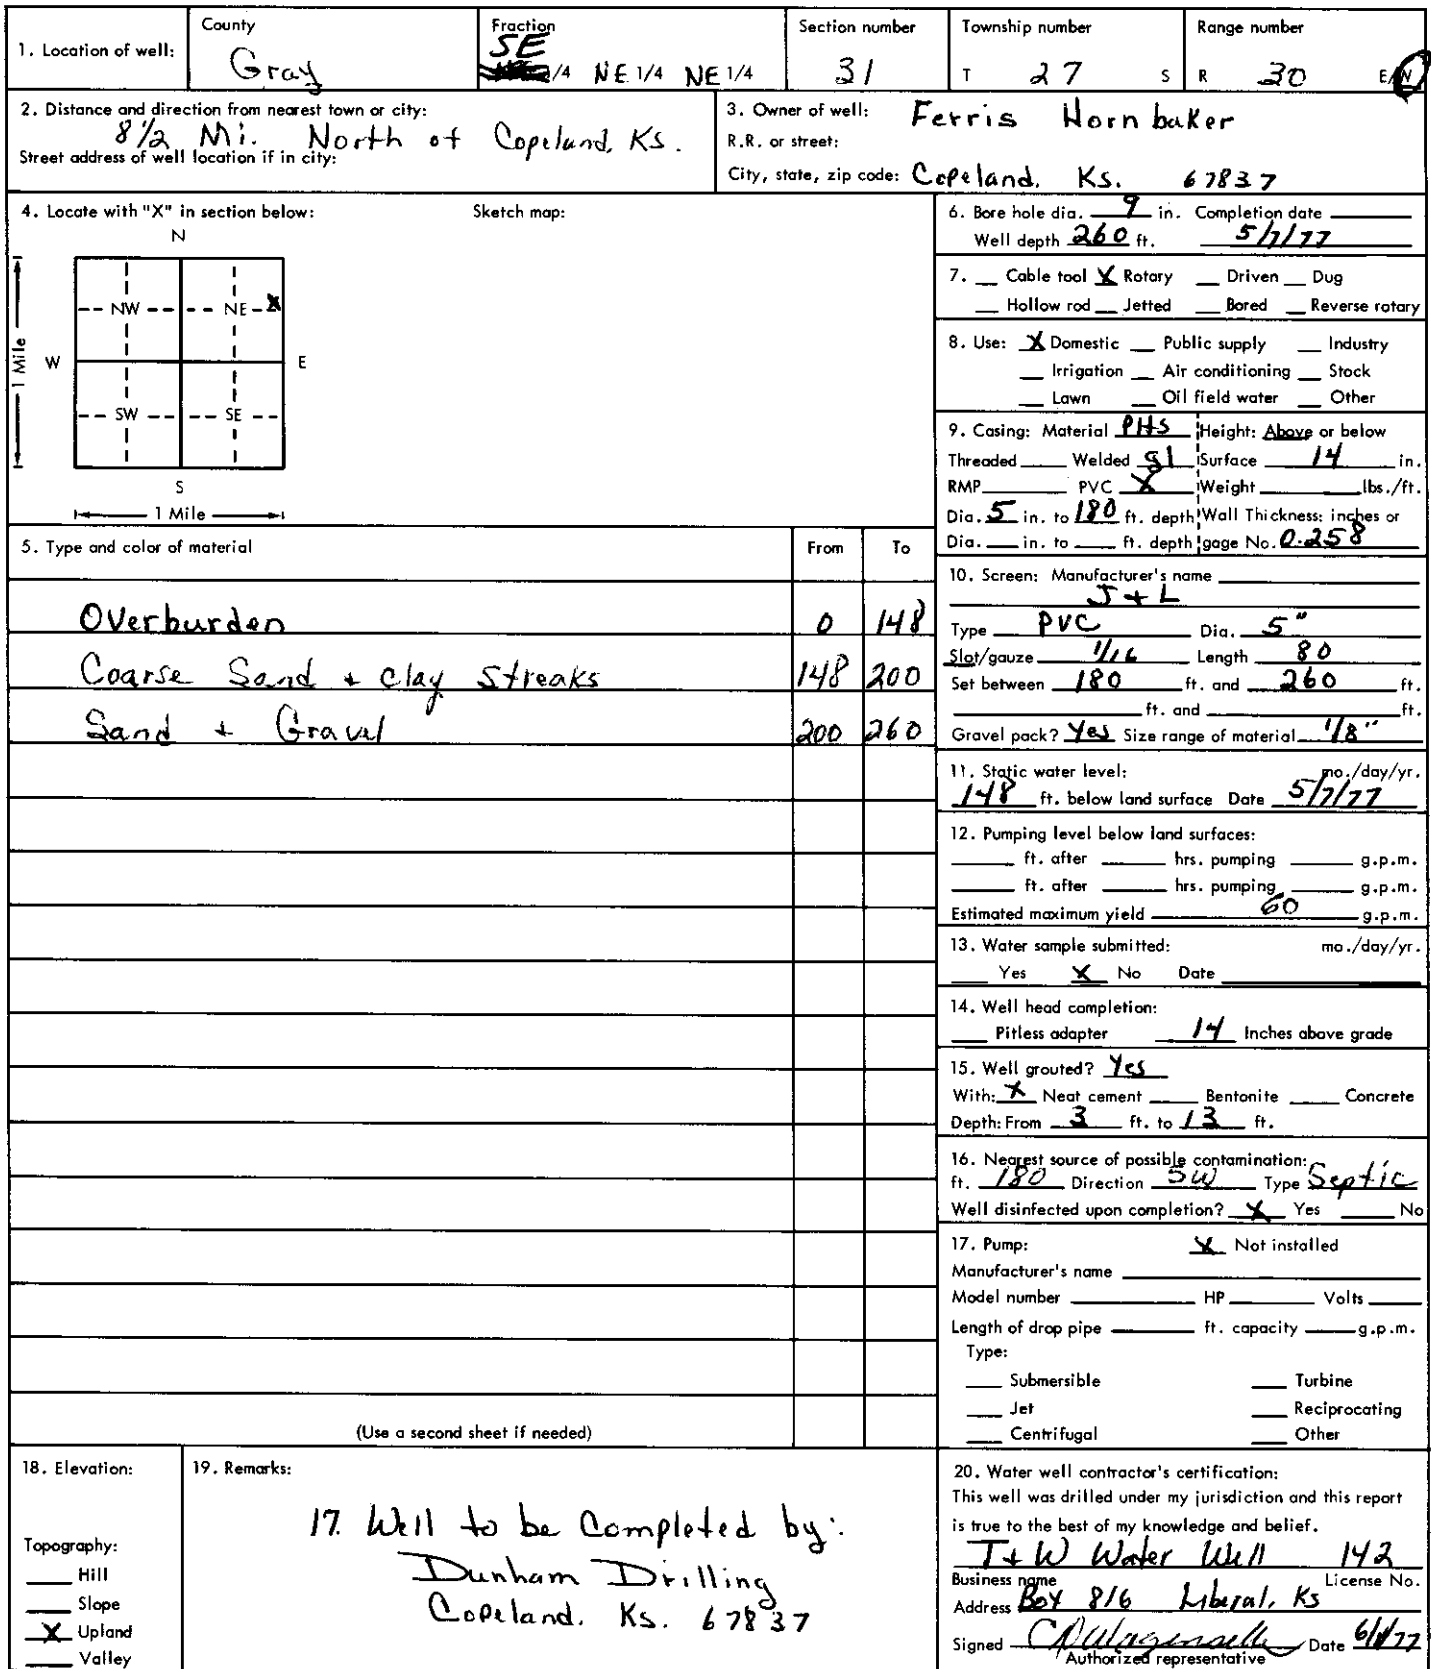 1. Location of well:
County
Gray
Fraction
SE
1/4 NE 1/4 NE 1/4
Section number
31
Township number
T 27 S
Range number
R 30 E/W
2. Distance and direction from nearest town or city:
8 1/2 Mi. North of Copeland, Ks.
Street address of well location if in city:
3. Owner of well: Ferris Hornbaker
R.R. or street:
City, state, zip code: Copeland. Ks. 67837
4. Locate with "X" in section below:
Sketch map:
N
NW NE X
1 Mile W E
SW SE
S
1 Mile
5. Type and color of material From To
Overburden 0 148
Coarse Sand + clay streaks 148 200
Sand + Gravel 200 260
(Use a second sheet if needed)
6. Bore hole dia. 9 in. Completion date
Well depth 260 ft. 5/7/77
7. __ Cable tool X Rotary __ Driven __ Dug
__ Hollow rod __ Jetted __ Bored __ Reverse rotary
8. Use: X Domestic __ Public supply __ Industry
__ Irrigation __ Air conditioning __ Stock
__ Lawn __ Oil field water __ Other
9. Casing: Material PHS Height: Above or below
Threaded ____ Welded gl Surface 14 in.
RMP ____ PVC X Weight ____ lbs./ft.
Dia. 5 in. to 180 ft. depth Wall Thickness: inches or
Dia. __ in. to __ ft. depth gage No. 0.258
10. Screen: Manufacturer's name
J + L
Type PVC Dia. 5"
Slot/gauze 1/16 Length 80
Set between 180 ft. and 260 ft.
____ ft. and ____ ft.
Gravel pack? Yes Size range of material 1/8"
11. Static water level: mo./day/yr.
148 ft. below land surface Date 5/7/77
12. Pumping level below land surfaces:
____ ft. after ____ hrs. pumping ____ g.p.m.
____ ft. after ____ hrs. pumping ____ g.p.m.
Estimated maximum yield 60 g.p.m.
13. Water sample submitted: mo./day/yr.
__ Yes X No Date ____
14. Well head completion:
__ Pitless adapter 14 Inches above grade
15. Well grouted? Yes
With: X Neat cement __ Bentonite __ Concrete
Depth: From 3 ft. to 13 ft.
16. Nearest source of possible contamination:
ft. 180 Direction SW Type Septic
Well disinfected upon completion? X Yes __ No
17. Pump: X Not installed
Manufacturer's name ____
Model number ____ HP ____ Volts ____
Length of drop pipe ____ ft. capacity ____ g.p.m.
Type:
__ Submersible __ Turbine
__ Jet __ Reciprocating
__ Centrifugal __ Other
18. Elevation:
Topography:
__ Hill
__ Slope
X Upland
__ Valley
19. Remarks:
17. Well to be Completed by:
Dunham Drilling
Copeland. Ks. 67837
20. Water well contractor's certification:
This well was drilled under my jurisdiction and this report
is true to the best of my knowledge and belief.
T+W Water Well 142
Business name License No.
Address Box 816 Liberal, Ks
Signed Date
Authorized representative